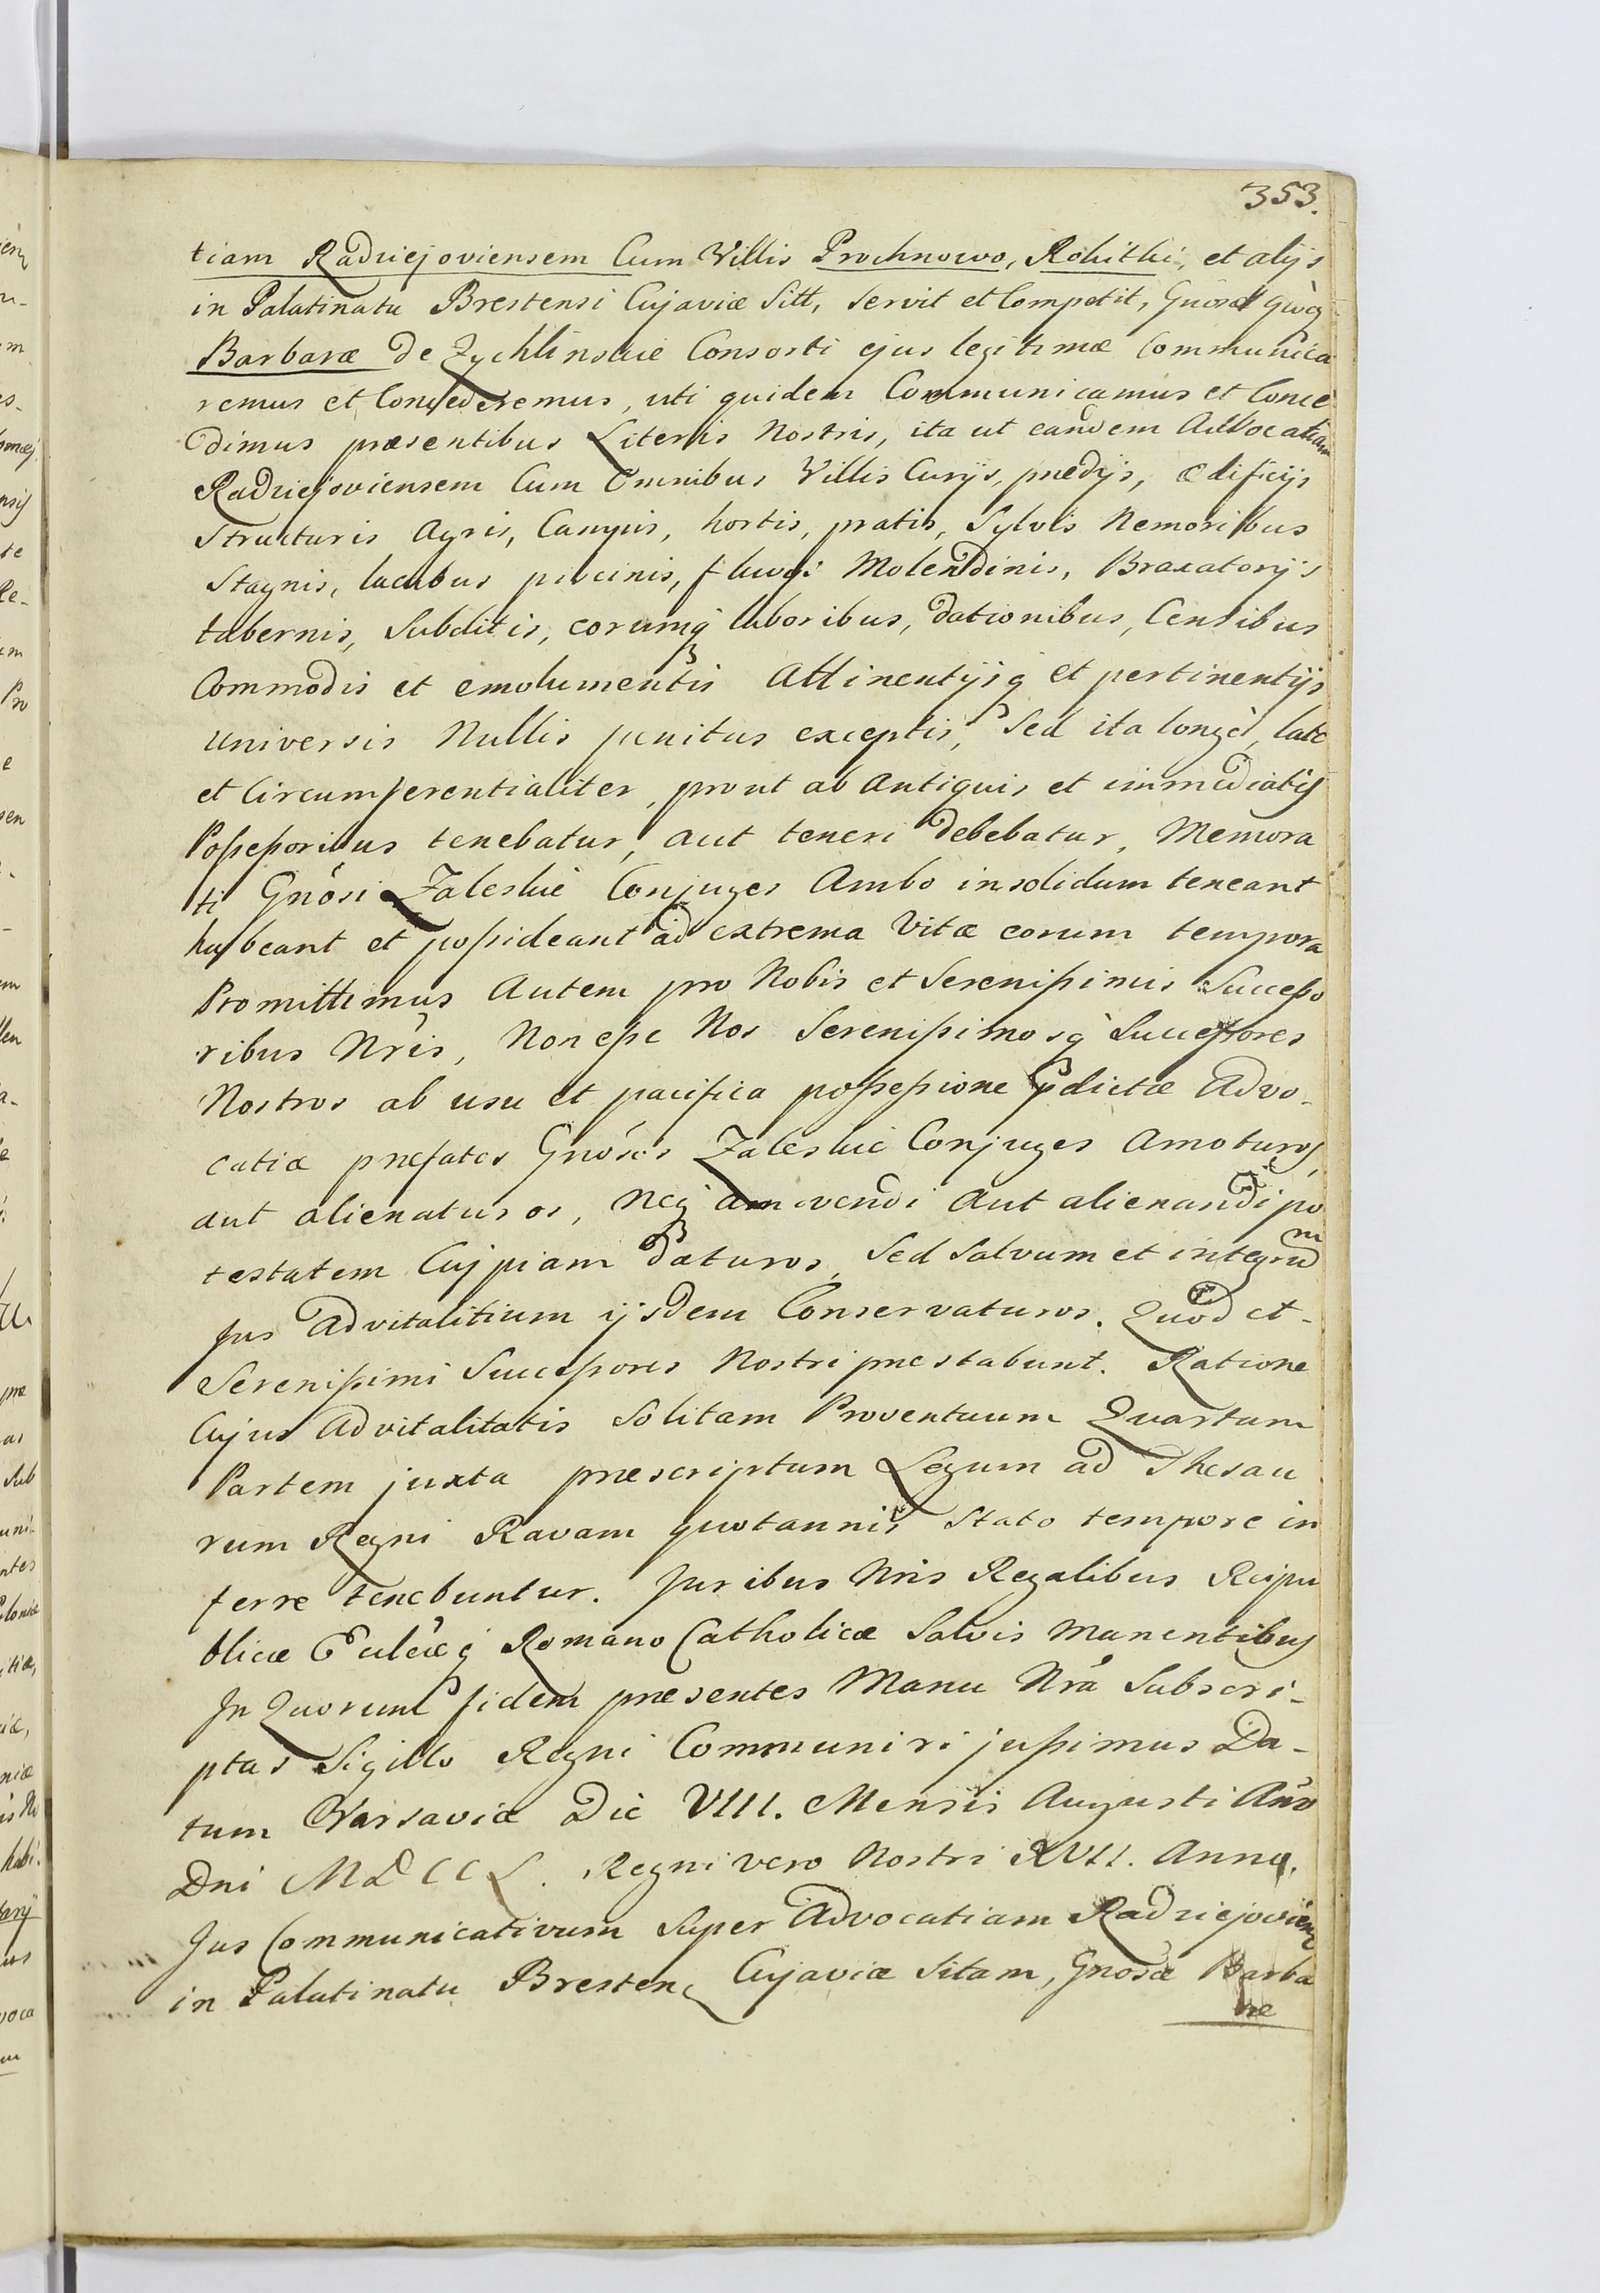 353.
tiam Radziejoviensem Cum Villis Prochnowo, Rokitki, et alijs
in Palatinatu Brestensi Cujaviæ Sitt, servit et Competit, Gnosæ
Barbaræ De Zychlinskie Consorti ejus legitimæ Communica
remus et Concederemus, uti quidem Communicamus et Conce
dimus præsentibus Literis Nostris, ita ut eandem Advocatiam
Radziejoviensem Cum Omnibus Villis Curijs, prædijs, ædificijs
structuris Agris, Campis, hortis, pratis, Sylvis Nemoribus
Stagnis, lacubus piscinis, fluvijs Molendinis, Braxatorijs
tabernis, Subditis, eorumq laboribus, dationibus, Censibus
Commodis et emolumentis Attinentijsq et pertinentijs
universis Nullis penitus exceptis, Sed ita longè, latè
et Circumferentialiter, prout ab Antiquis et immediatis
Poſseſsoribus tenebatur, aut teneri debebatur, Memora
ti Gnósi Zaleskie Conjuges Ambo insolidum teneant
habeant et poſsideant ad extrema Vitæ eorum tempora
Promittimus Autem pro Nobis et Sereniſsimis Succeſso
ribus Nris, Non eſse Nos Sereniſsimosq Succeſsores
Nostros ab usu et pacifica poſseſsione pdictæ Advo-
catiæ præfatos Gnósos Zaleskie Conjuges Amoturos,
aut alienaturos, Neq amovendi Aut alienandi po
testatem Cujpiam daturos, Sed Salvum et integrum
Jus Advitalitium ijsdem Conservaturos. Quod et-
Sereniſsimi Succeſsores Nostri præstabunt. Ratione
Cujus Advitalitatis Solitam Proventuum Quartam
Partem juxta præscriptum Legum ad Thesau
rum Regni Ravam quotannis Stato tempore in
ferre tenebuntur. Juribus Nris Regalibus Reipu
blicæ Ecclæq Romano Catholicæ Salvis Manentibus
In Quorum fidem præsentes Manu Nrá Subscri-
ptas Sigillo Regni Communiri juſsimus Da-
tum Varsaviæ Die VIII. Mensis Augusti Ano
Dni MDCCL. Regni vero Nostri XVII. Anno.
Jus Communicativum Super Advocatiam Radziejovien
in Palatinatu Bresten Cujaviæ Sitam, Gnosæ Barba
ræ